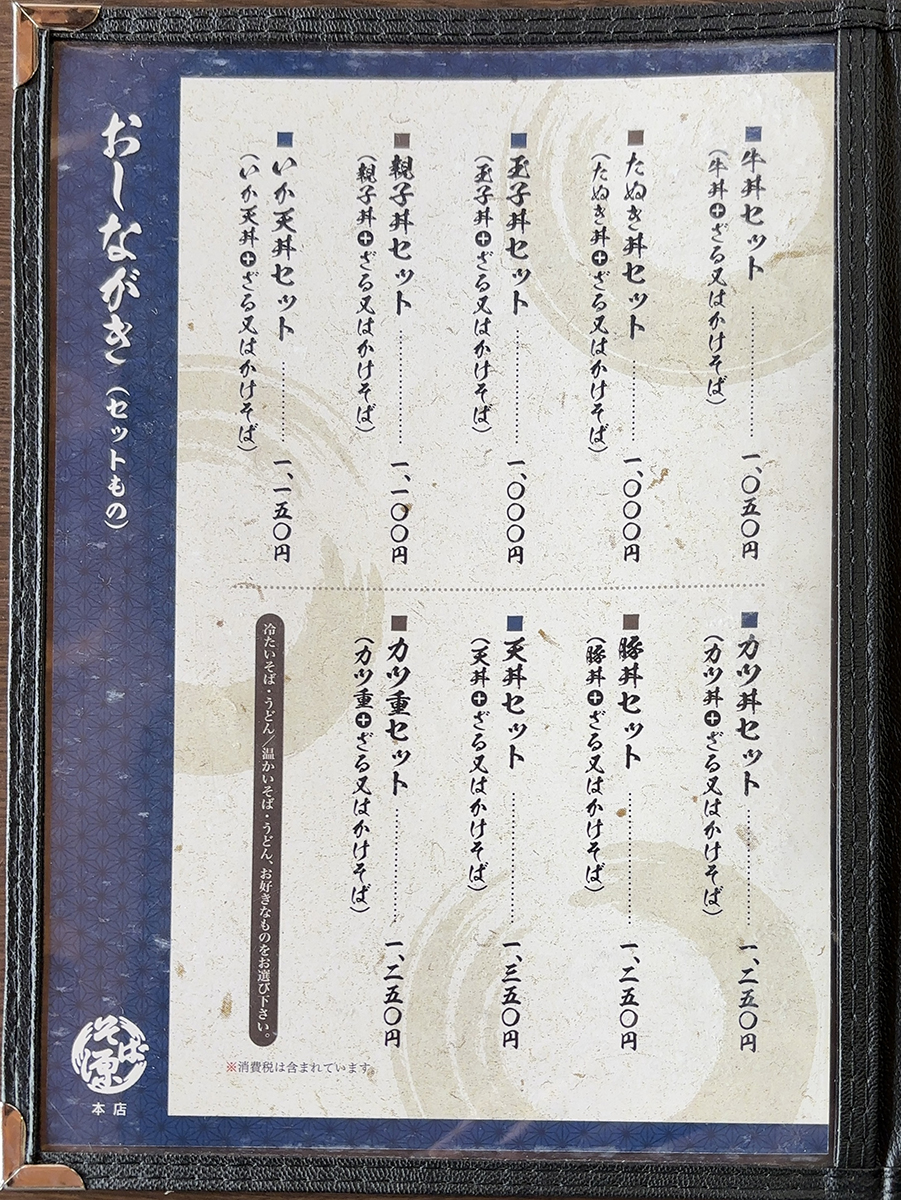 牛丼セット
一、〇五〇円
(牛丼+ざる又はかけそば)
たぬき丼セット
一、〇〇〇円
(たぬき丼+ざる又はかけそば)
玉子丼セット
一、〇〇〇円
(玉子丼+ざる又はかけそば)
親子丼セット
一、一〇〇円
(親子丼+ざる又はかけそば)
いか天丼セット
一、一五〇円
(いか天丼+ざる又はかけそば)
カツ丼セット
一、二五〇円
(カツ丼+ざる又はかけそば)
豚丼セット
一、二五〇円
(豚丼+ざる又はかけそば)
天丼セット
一、三五〇円
(天丼+ざる又はかけそば)
カツ重セット
一、二五〇円
(カツ重+ざる又はかけそば)
冷たいそば・うどん/温かいそば・うどん、お好きなものをお選び下さい。
※消費税は含まれています
おしながき(セットもの)
そば源
本店